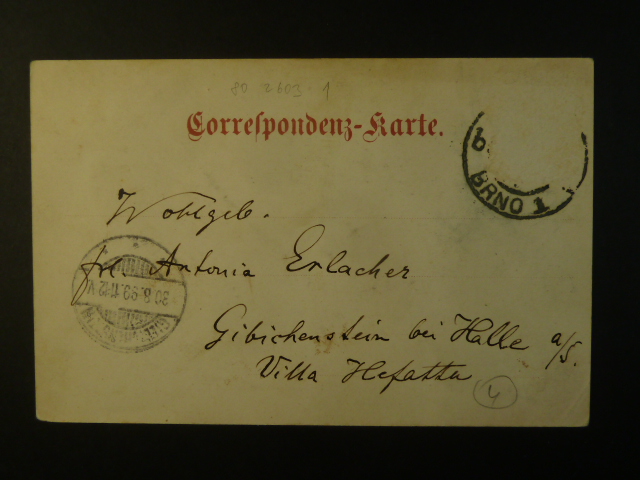 80 2603 1
Correspondenz-Karte.
b
BRNO 1
Wohlgeb.
frl. Antonia Erlacher
30.8.99.11-12V.
Gibichenstein bei Halle a/S.
Villa Hefatta
4